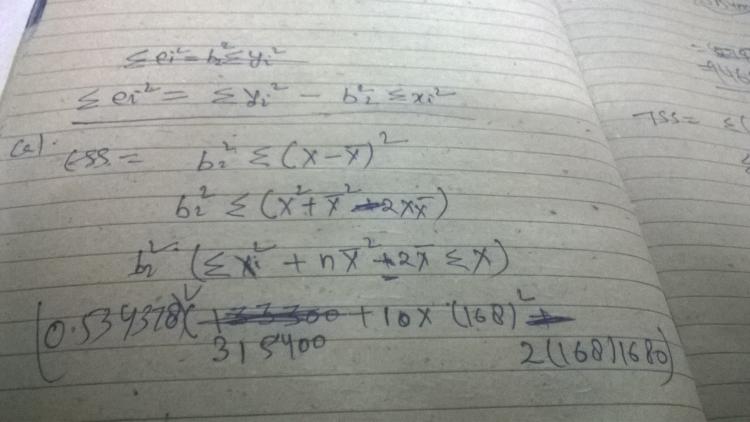 Σei² = b₂² Σyi²
Σei² = Σyi² - b₂² Σxi²
(a). ESS = b₂² Σ(X-X̄)²
TSS = Σ(
b₂² Σ(X² + X̄² - 2XX̄)
b₂² (ΣXi² + nX̄² - 2X̄ΣX)
(0.539378)² (133300 + 10x (168)² -
315400 2(168)1680)